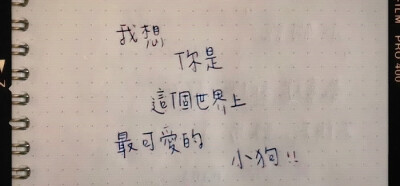 我想
你是
這個世界上
最可愛的
小狗!!
FILM PRO 400